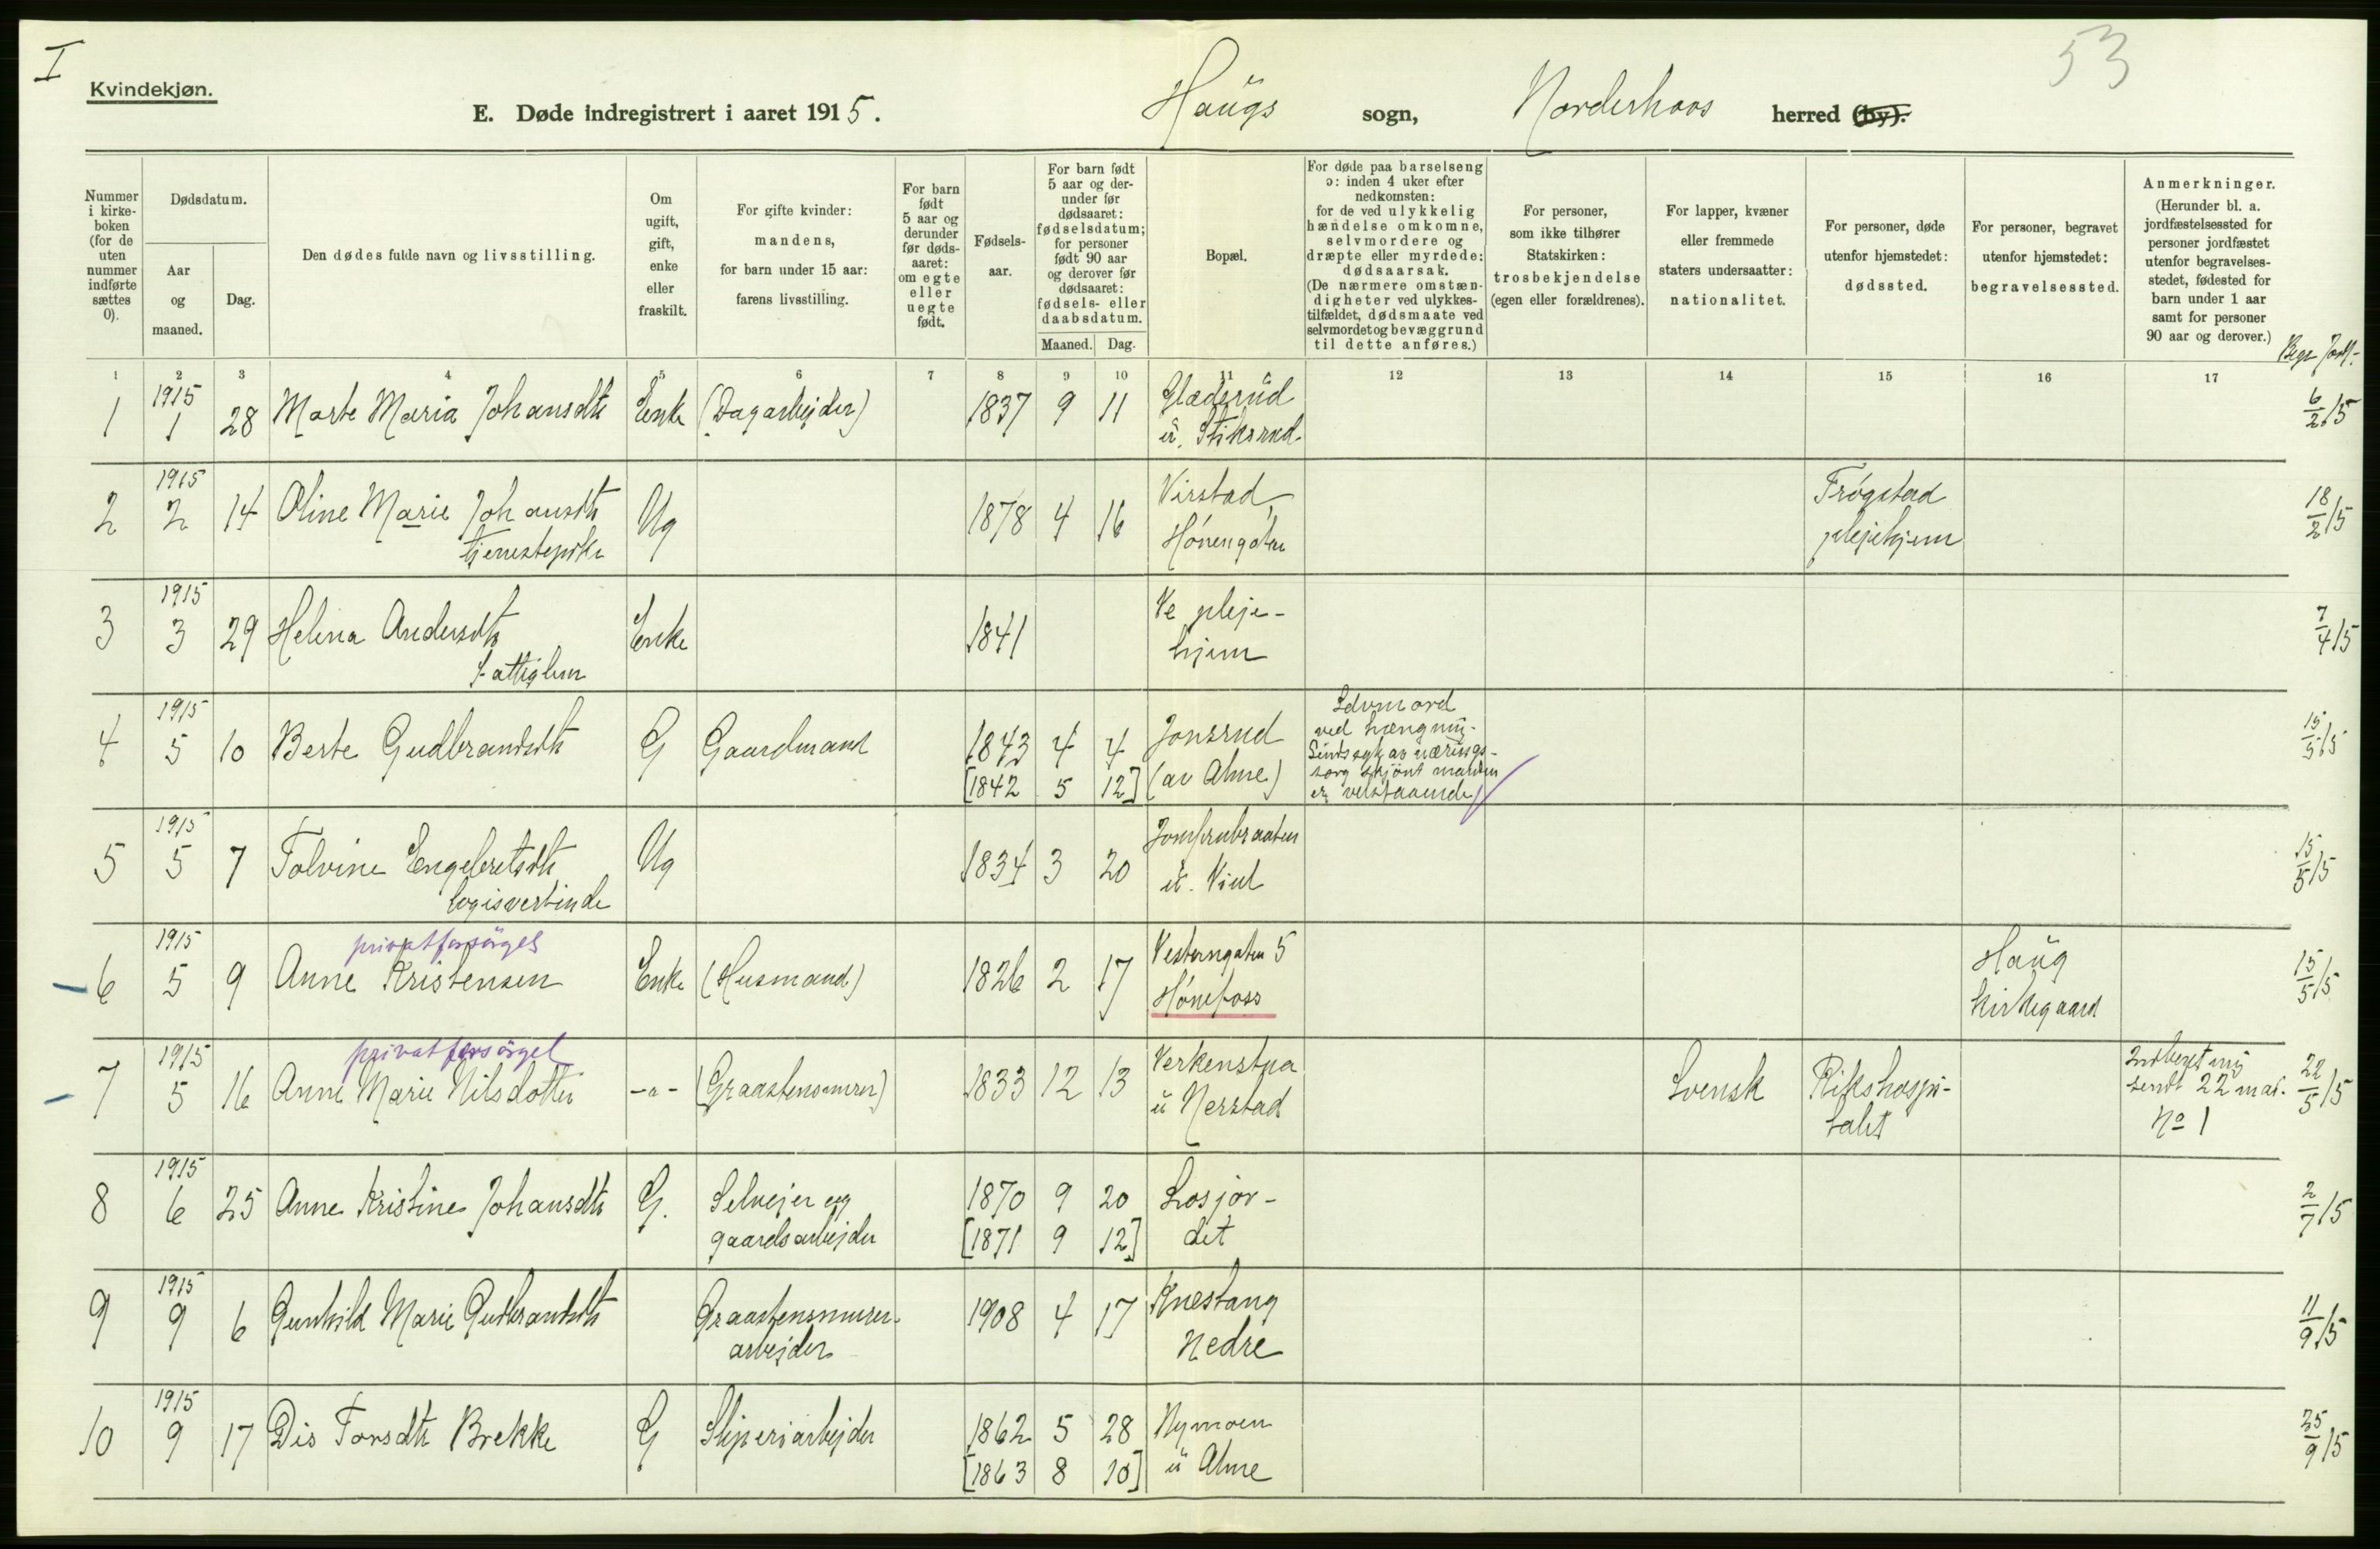 I
53
Kvindekjøn.
E. Døde indregistrert i aaret 1915.
Haugs sogn, Norderhovs herred (by).
Nummer i kirke-boken (for de uten nummer indførte sættes 0).
Dødsdatum.
Aar og maaned.
Dag.
Den dødes fulde navn og livsstilling.
Om ugift, gift, enke eller fraskilt.
For gifte kvinder: mandens, for barn under 15 aar: farens livsstilling.
For barn født 5 aar og derunder før døds-aaret: om egte eller uegte født.
Fødsels-aar.
For barn født 5 aar og der-under før dødsaaret: fødselsdatum; for personer født 90 aar og derover før dødsaaret: fødsels- eller daabsdatum.
Maaned. Dag.
Bopæl.
For døde paa barselseng ɔ: inden 4 uker efter nedkomsten: for de ved ulykkelig hændelse omkomne, selvmordere og dræpte eller myrdede: dødsaarsak. (De nærmere omstæn-digheter ved ulykkes-tilfældet, dødsmaate ved selvmordet og bevæggrund til dette anføres.)
For personer, som ikke tilhører Statskirken: trosbekjendelse (egen eller forældrenes).
For lapper, kvæner eller fremmede staters undersaatter: nationalitet.
For personer, døde utenfor hjemstedet: dødssted.
For personer, begravet utenfor hjemstedet: begravelsessted.
Anmerkninger. (Herunder bl. a. jordfæstelsessted for personer jordfæstet utenfor begravelses-stedet, fødested for barn under 1 aar samt for personer 90 aar og derover.)
Begr Jordf.
1 2 3 4 5 6 7 8 9 10 11 12 13 14 15 16 17
1 1915 1 28 Marte Maria Johansdtr Enke (Dagarbejder) 1837 9 11 Gladerud u. Stiksrud 6/2 15
2 1915 2 14 Oline Marie Johansdtr tjenestepike Ug 1878 4 16 Virstad, Hønengaten Frøgstad plejehjem 18/2 15
3 1915 3 29 Helena Andersdtr Fattiglem Enke 1841 Ve pleje-hjem 7/4 15
4 1915 5 10 Berte Gudbrandsdtr G Gaardmand 1843 4 4 [1842 5 12] Jonsrud (av Alme) Selvmord ved hængning. Sindssyk av nærings-sorg skjønt manden er velstaaende 15/5 15
5 1915 5 7 Tolvine Engebretsdtr logisvertinde Ug 1834 3 20 Jomfrubraaten u. Viul 15/5 15
6 1915 5 9 privat forsørget Anne Kristensen Enke (Husmand) 1826 2 17 Vesterngaten 5 Hønefoss Haug kirkegaard 15/5 15
7 1915 5 16 privat forsørget Anne Marie Nilsdotter -"- (Graastensmurer) 1833 12 13 Verkenstua u Nerstad Svensk Rikshospi-talet Indberetning sendt 22 mai. No 1 22/5 15
8 1915 6 25 Anne Kristine Johansdtr G. Selvejer og gaardsarbejder 1870 9 20 [1871 9 12] Losjor-det 2/7 15
9 1915 9 6 Gunhild Marie Gudbrandsdtr Graastensmurer-arbejder 1908 4 17 Knestang Nedre 11/9 15
10 1915 9 17 Dis Torsdtr Brekke G Sliperiarbejder 1862 5 28 [1863 8 10] Nymoen u Alme 25/9 15